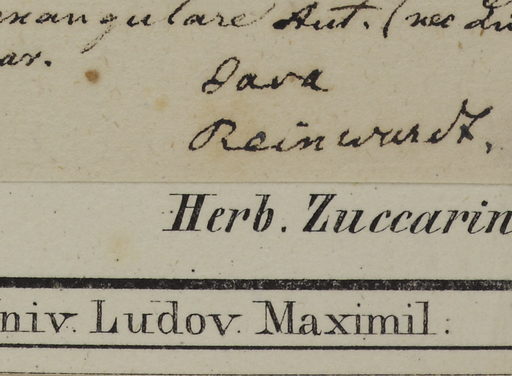 exangulare Aut. (nec Lin
ar.
Java
Reinwardt.
Herb. Zuccarin
niv. Ludov. Maximil: